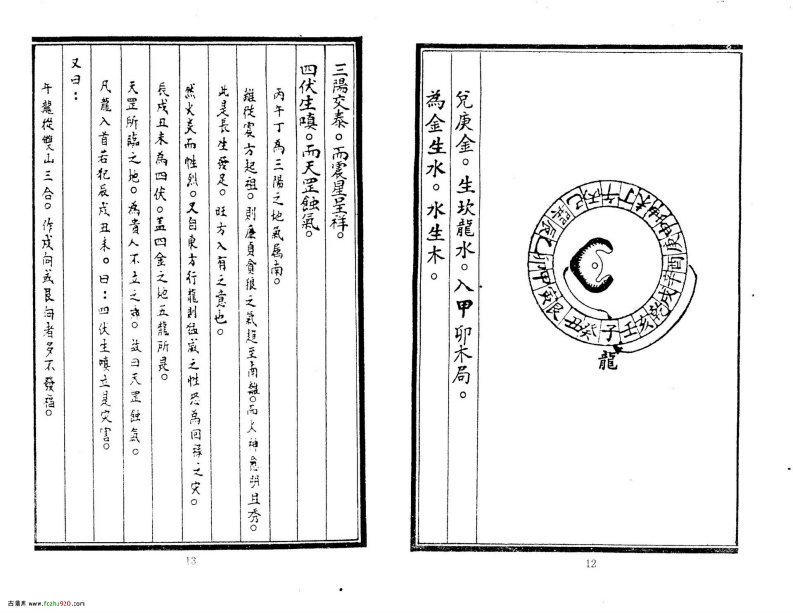 兌庚金。生坎龍水。入甲卯木局。
為金生水。水生木。
龍
12
三陽交泰。而震星呈祥。
四伏生嗔。而天罡蝕氣。
丙午丁為三陽之地氣屬南。
維從震方起祖。則廉貞貪狼之氣趨至南離。而火神愈明且秀。
此是長生發足。旺方入首之意也。
然火炎而性烈。又自東方行龍則猛威之性恐為回祿之災。
辰戌丑未為四伏。蓋四金之地五龍所忌。
天罡所臨之地。為貴人不立之方。故曰天罡蝕氣。
凡龍入首若犯辰戌丑未。曰：四伏生嗔立是災害。
又曰：
午龍從雙山三合。作戌向或艮向者多不發福。
13
古籍库 www.fczhu920.com